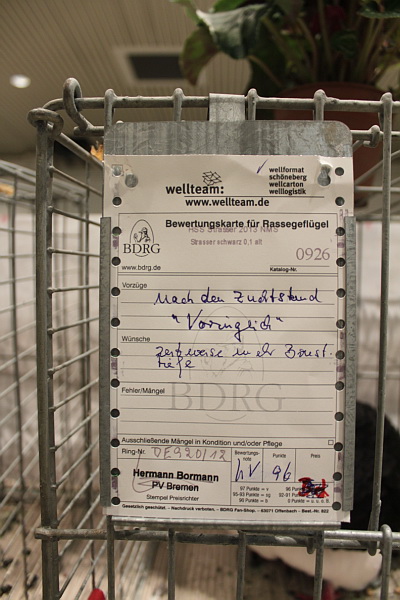 wellteam:
wellformat
schöneberg
wellcarton
welllogistik
www.wellteam.de
Bewertungskarte für Rassegeflügel
HSS Strasser 2013 NMS
Strasser schwarz 0,1 alt
BDRG
0926
www.bdrg.de
Katalog-Nr.
Vorzüge
Nach dem Zuchtstand
"Vorzüglich"
Wünsche
zeitweise mehr Brust-
tiefe
Fehler/Mängel
BDRG
Ausschließende Mängel in Kondition und/oder Pflege
Ring-Nr.
DE920/12
Bewertungs-
note
Punkte
Preis
hV
96
Hermann Bormann
PV Bremen
Stempel Preisrichter
97 Punkte = v
93-95 Punkte = sg
96 Punkte = hv
Gesetzlich geschützt. - Nachdruck verboten. - BDRG Fan-Shop. - 63071 Offenbach - Best.-Nr. 922